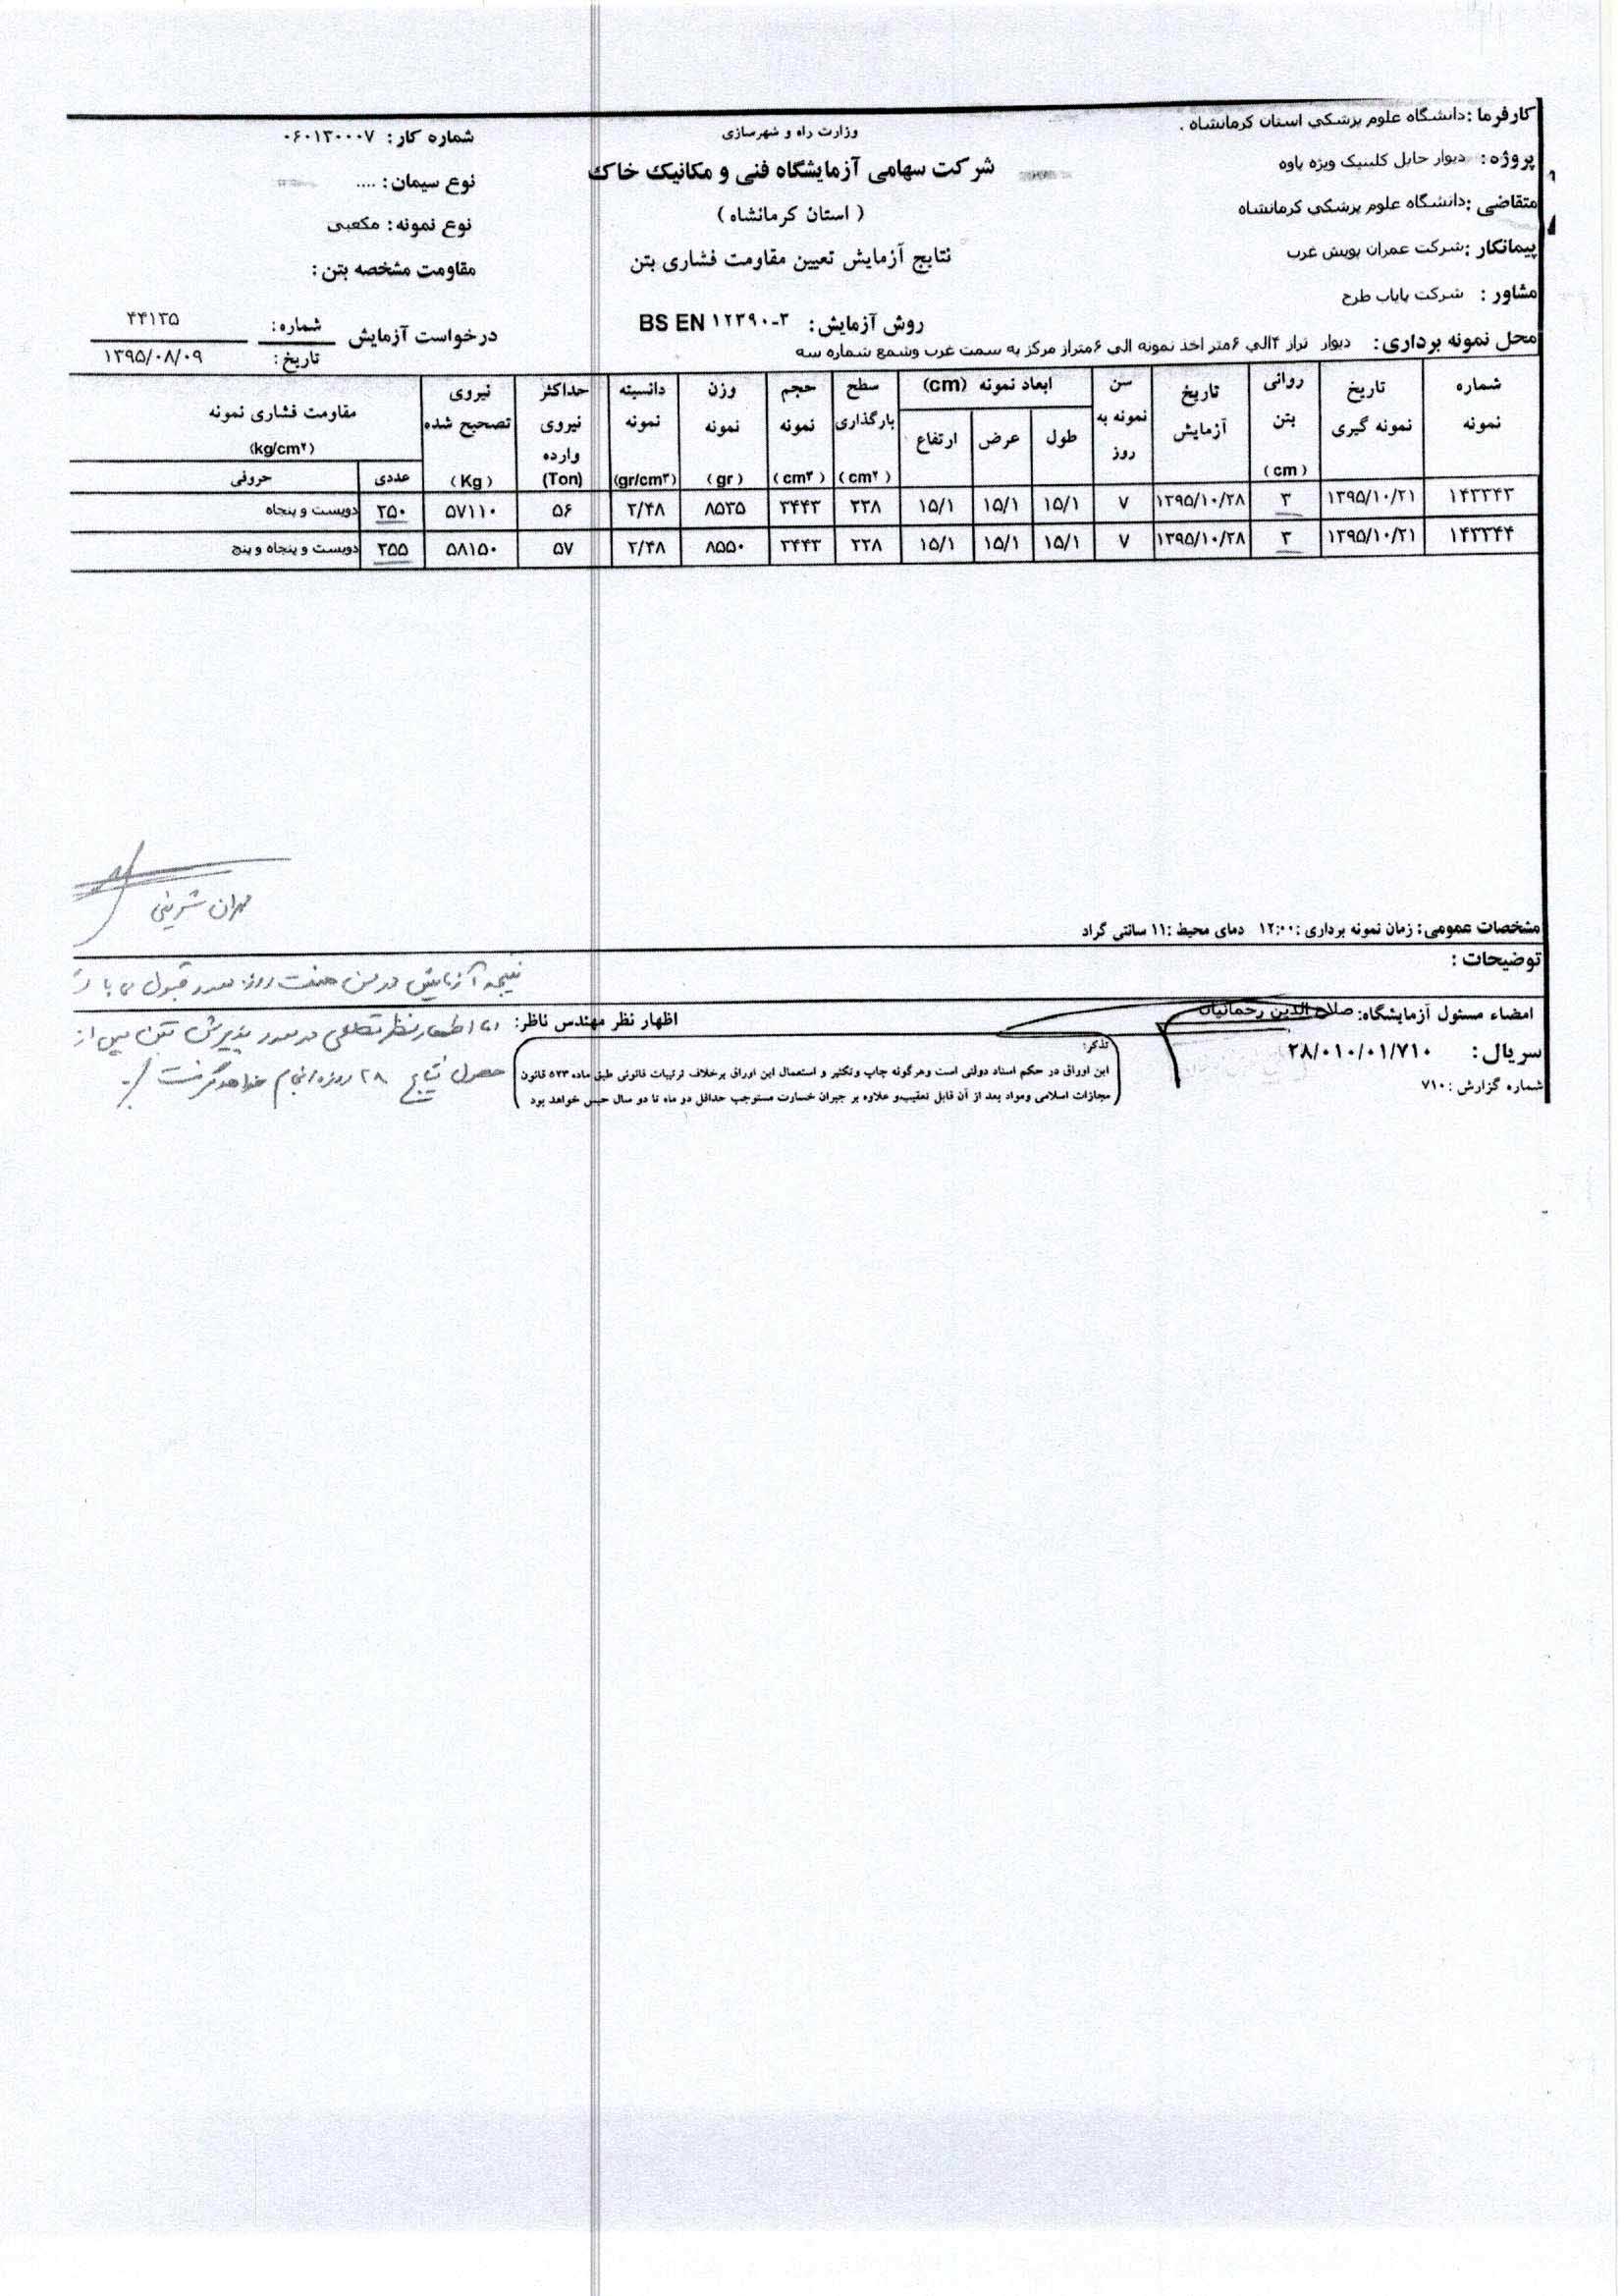 کارفرما :دانشگاه علوم پزشکی استان کرمانشاه .
پروژه : دیوار حایل کلینیک ویژه پاوه
متقاضی :دانشگاه علوم پزشکی کرمانشاه
پیمانکار :شرکت عمران پویش غرب
مشاور : شرکت پایاب طرح
وزارت راه و شهرسازی
شرکت سهامی آزمایشگاه فنی و مکانیک خاک
( استان کرمانشاه )
نتایج آزمایش تعیین مقاومت فشاری بتن
روش آزمایش: BS EN ۱۲۳۹۰-۳
شماره کار: ۰۶۰۱۳۰۰۰۷
نوع سیمان: ....
نوع نمونه: مکعبی
مقاومت مشخصه بتن:
درخواست آزمایش شماره: ۴۴۱۳۵
تاریخ: ۱۳۹۵/۰۸/۰۹
محل نمونه برداری: دیوار تراز ۴الی ۶متر اخذ نمونه الی ۶متراز مرکز به سمت غرب وشمع شماره سه
شماره نمونه تاریخ نمونه گیری روانی بتن (cm) تاریخ آزمایش سن نمونه به روز ابعاد نمونه (cm) طول عرض ارتفاع سطح بارگذاری (cm۲) حجم نمونه (cm۳) وزن نمونه (gr) دانسیته نمونه (gr/cm۳) حداکثر نیروی وارده (Ton) نیروی تصحیح شده (Kg) مقاومت فشاری نمونه (kg/cm۲) عددی حروفی
۱۴۳۳۴۳ ۱۳۹۵/۱۰/۲۱ ۳ ۱۳۹۵/۱۰/۲۸ ۷ ۱۵/۱ ۱۵/۱ ۱۵/۱ ۲۲۸ ۳۴۴۳ ۸۵۳۵ ۲/۴۸ ۵۶ ۵۷۱۱۰ ۲۵۰ دویست و پنجاه
۱۴۳۳۴۴ ۱۳۹۵/۱۰/۲۱ ۳ ۱۳۹۵/۱۰/۲۸ ۷ ۱۵/۱ ۱۵/۱ ۱۵/۱ ۲۲۸ ۳۴۴۳ ۸۵۵۰ ۲/۴۸ ۵۷ ۵۸۱۵۰ ۲۵۵ دویست و پنجاه و پنج
مهران شریفی
مشخصات عمومی: زمان نمونه برداری :۱۲:۰۰ دمای محیط :۱۱ سانتی گراد
توضیحات :
نتیجه آزمایش در سن هفت روزه مورد قبول می باشد
امضاء مسئول آزمایشگاه: صلاح الدین رحمانیان
اظهار نظر مهندس ناظر: اما اظهار نظر قطعی در مورد پذیرش بتن پس از
حصول نتایج ۲۸ روزه انجام خواهد گرفت
سریال: ۲۸/۰۱۰/۰۱/۷۱۰
شماره گزارش : ۷۱۰
تذکر:
این اوراق در حکم اسناد دولتی است وهرگونه چاپ وتکثیر و استعمال این اوراق برخلاف ترتیبات قانونی طبق ماده ۵۲۳ قانون
مجازات اسلامی ومواد بعد از آن قابل تعقیب،و علاوه بر جبران خسارت مستوجب حداقل دو ماه تا دو سال حبس خواهد بود